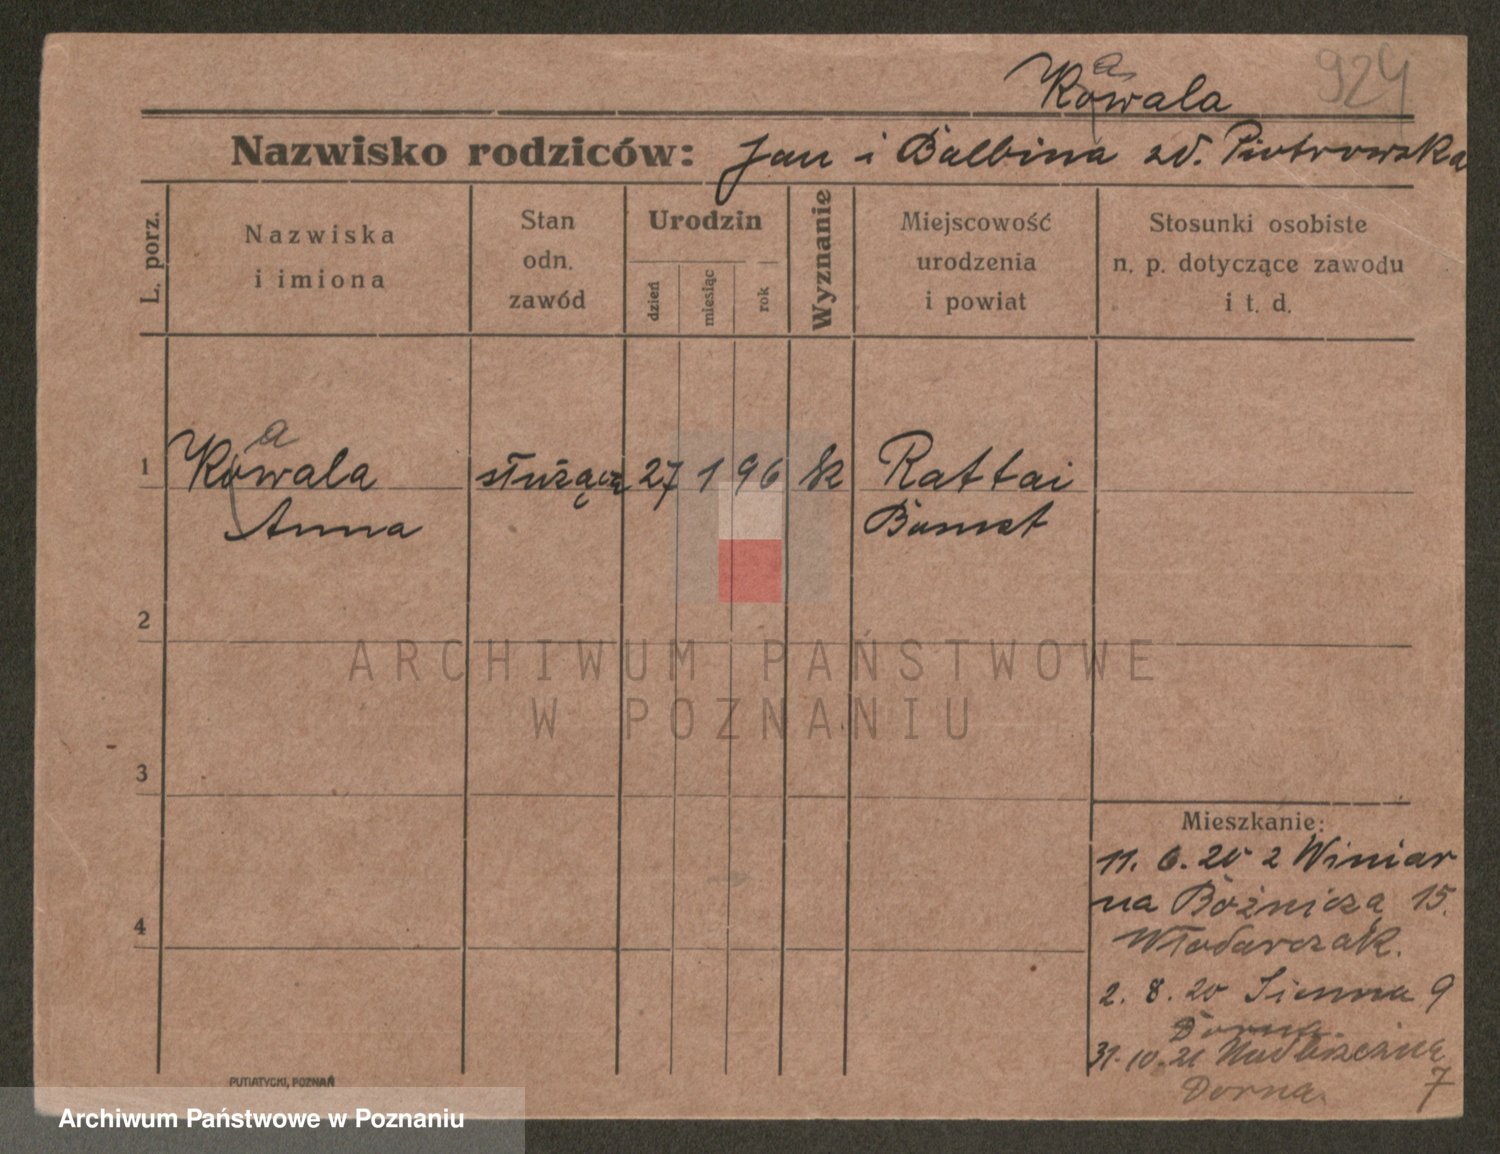 924
Kawala
Nazwisko rodziców: Jan i Balbina zd. Piotrowska
L. porz.
Nazwiska
i imiona
Stan
odn.
zawód
Urodzin
dzień
miesiąc
rok
Wyznanie
Miejscowość
urodzenia
i powiat
Stosunki osobiste
n. p. dotyczące zawodu
i t. d.
1
Kawala
Anna
służąca
27
1
96
k
Rattai
Bomst
2
3
4
Mieszkanie:
11. 6. 20 z Winiar
na Bożniczą 15.
Włodarczak.
2. 8. 20 Sienna 9
Dorna.
31. 10. 21
Dorna. 7
PUTIATYCKI, POZNAŃ
ARCHIWUM PAŃSTWOWE
W POZNANIU
Archiwum Państwowe w Poznaniu